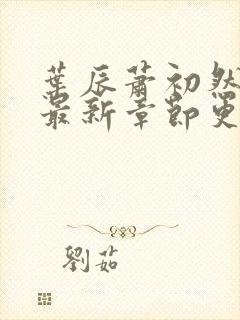 葉辰蕭初然
最新章節更
劉茹